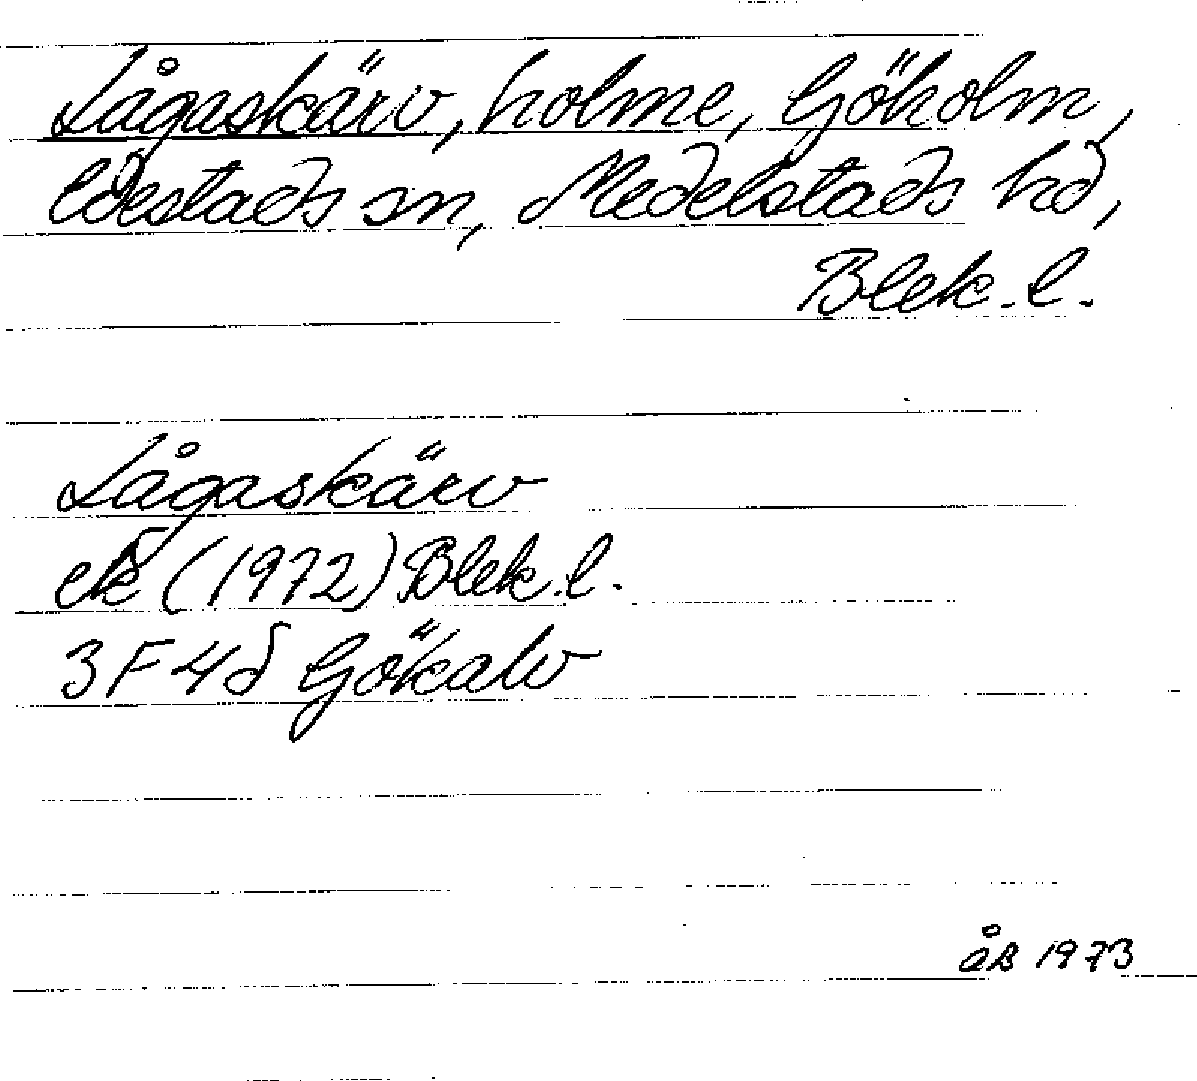 Lågaskärv, holme, Göholm,
Edestads sn, Medelstads hd,
Blek. l.
Lågaskärv
ek (1972) Blek. l.
3 F 4d Gökalv
åB 1973